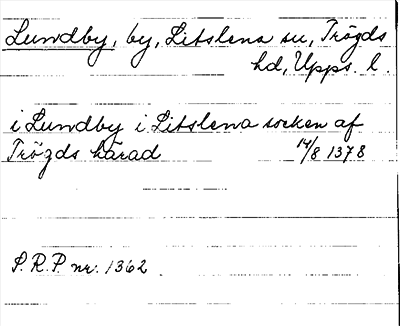 Lundby, by, Litslena sn, Trögds
hd, Upps. l.
i Lundby i Litslena socken af
Trögds härad 14/8 1378
S.R.P. nr. 1362